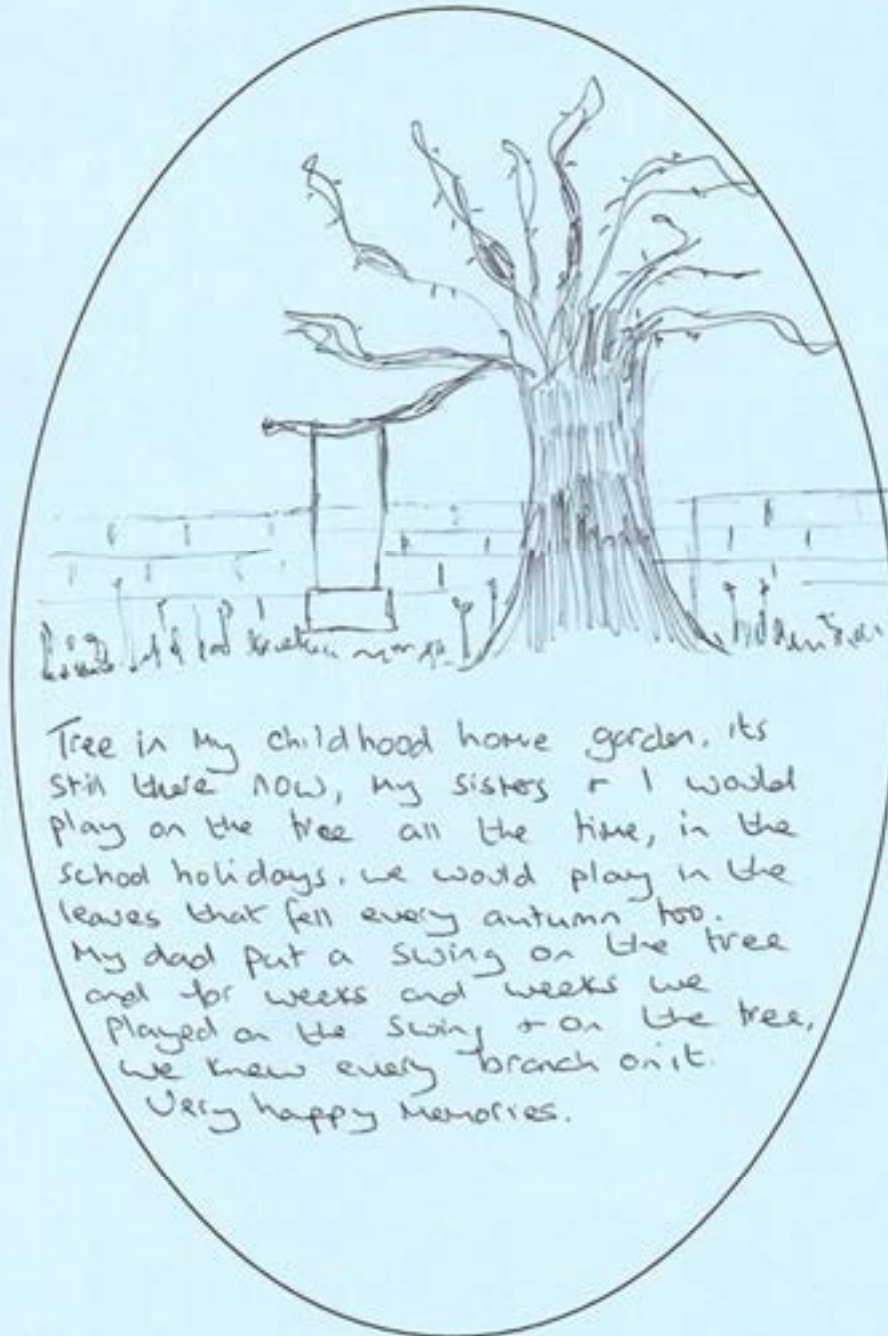 Tree in my childhood home garden, its
still there now, my sisters + I would
play on the tree all the time, in the
school holidays. we would play in the
leaves that fell every autumn too.
My dad put a swing on the tree
and for weeks and weeks we
played on the swing + on the tree,
we knew every branch on it.
Very happy memories.